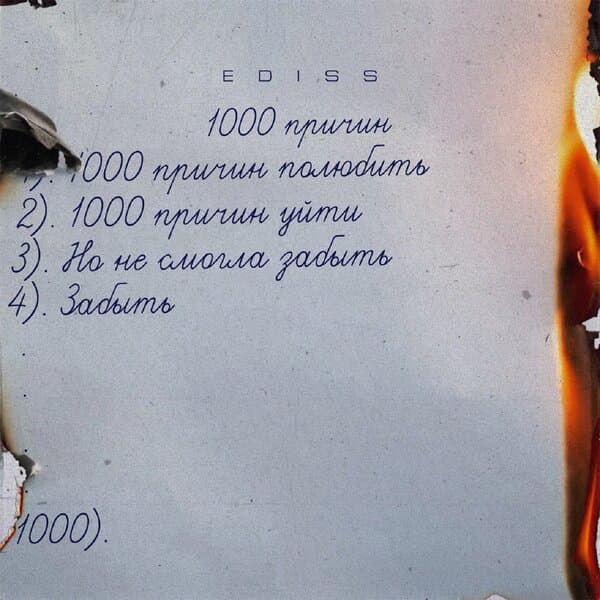 EDISS
1000 причин
1). 1000 причин полюбить
2). 1000 причин уйти
3). Но не смогла забыть
4). Забыть
1000).